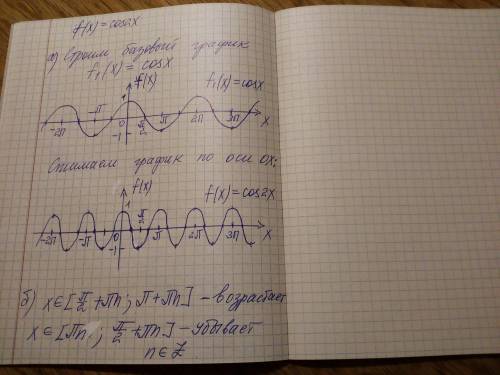 f(x) = cos2x
а) Строим базовый график
f₁(x) = cosx
f(x) f₁(x) = cosx
1
-2π -π 0 π/2 π 2π 3π x
-1
Сжимаем график по оси ОX:
f(x) f(x) = cos2x
1
-2π -π 0 π/2 π 2π 3π x
-1
б) x∈[π/2+πn; π+πn] – возрастает
x∈[πn; π/2+πn] – убывает
n∈Z